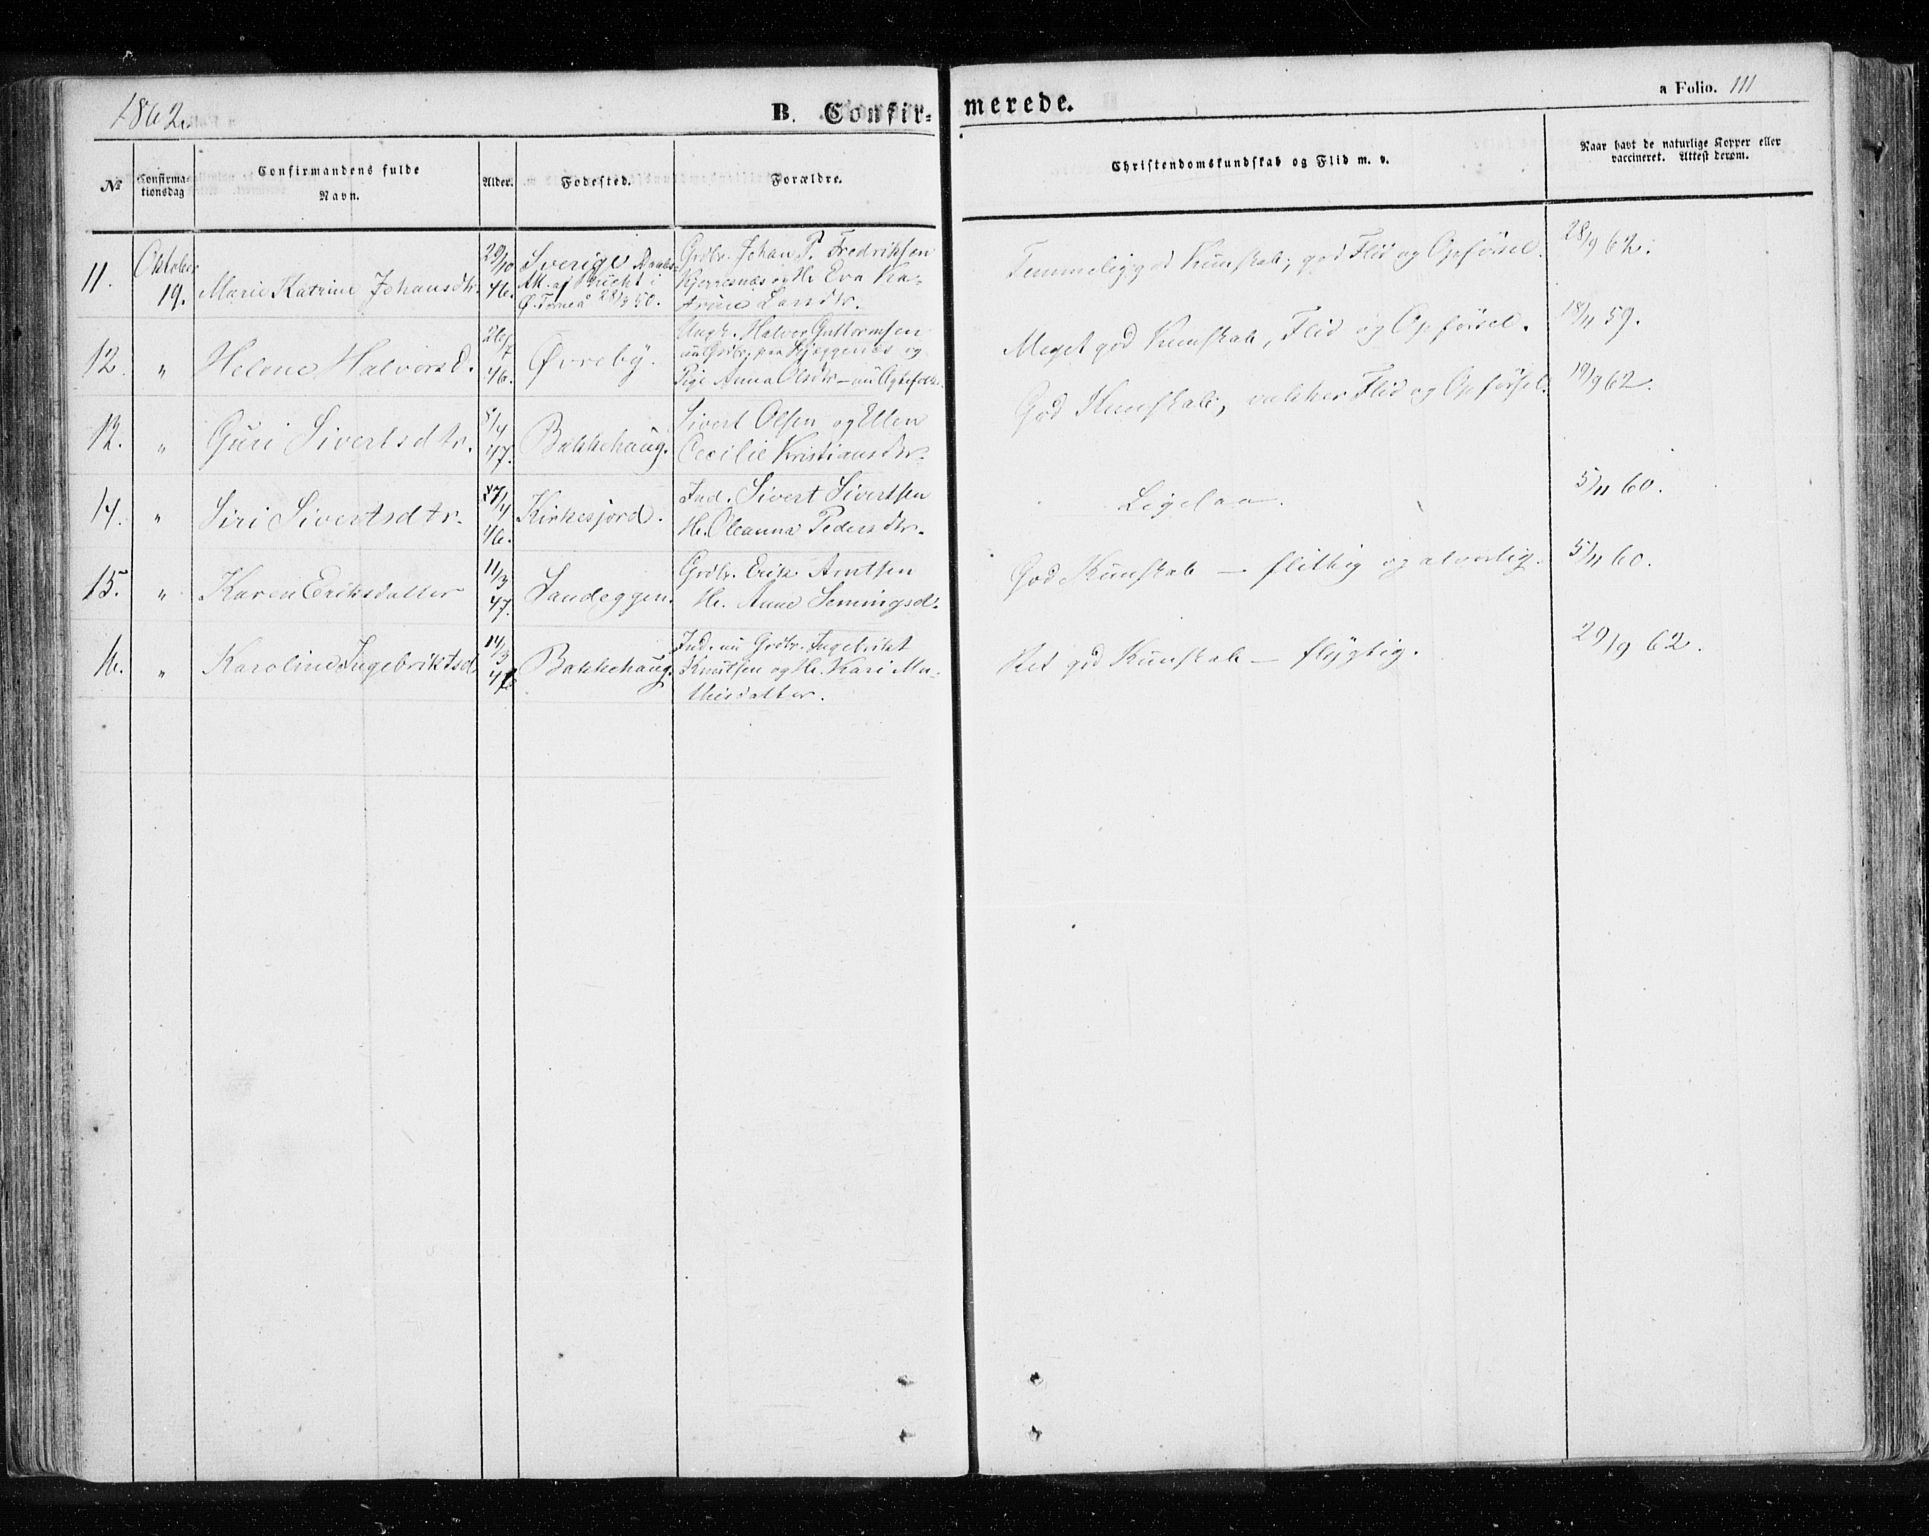 1862.
B. Confirmerede.
a Folio. 111
№
Confirmationsdag
Confirmandens fulde Navn.
Alder.
Fødested.
Forældre.
Christendomskundskab og Flid m. v.
Naar havt de naturlige Kopper eller vaccineret. Attest derom.
11. Oktober 19. Marie Katrine Johansdtr. 29/10 46. Sverige
Ø. Torneå 28/3 50. Grdbr. Johan P. Fredriksen
Kjerresnæs og He. Eva Katrine
Temmelig god Kunskab, god Flid og Opførsel. 28/9 62.
12. " Helene Halvorsd. 46. Øvreby. Ungk. Halvor Guttormsen
nu Grdbr. paa og
Pige Anna Olsdtr - nu Ægtefolk.
Meget god Kunskab, Flid og Opførsel. 18/11 59.
13. " Guri Sivertsdtr. 5/4 47. Bakkehaug. Sivert Olsen og Ellen
Cecilie Kristiansdtr.
God Kunskab, vakker Flid og Opførsel. 19/9 62.
14. " Siri Sivertsdtr. 27/4 46. Kirkesjord. Ind. Sivert Sivertsen
He. Oleanna Pedersdtr.
Ligesaa. 5/11 60.
15. " Karen Eriksdatter 11/3 47. Sandeggen. Grdbr. Erik Arntsen
He. Anne Semingsd.
God Kunskab – flittig og alvorlig. 5/11 60.
16. " Karoline Ingebriktsd. 14/3 47. Bakkehaug. Ind. nu Grdbr. Ingebrikt
Knutsen og He. Kari Mathisdatter.
Ret god Kunskab – flygtig. 29/9 62.